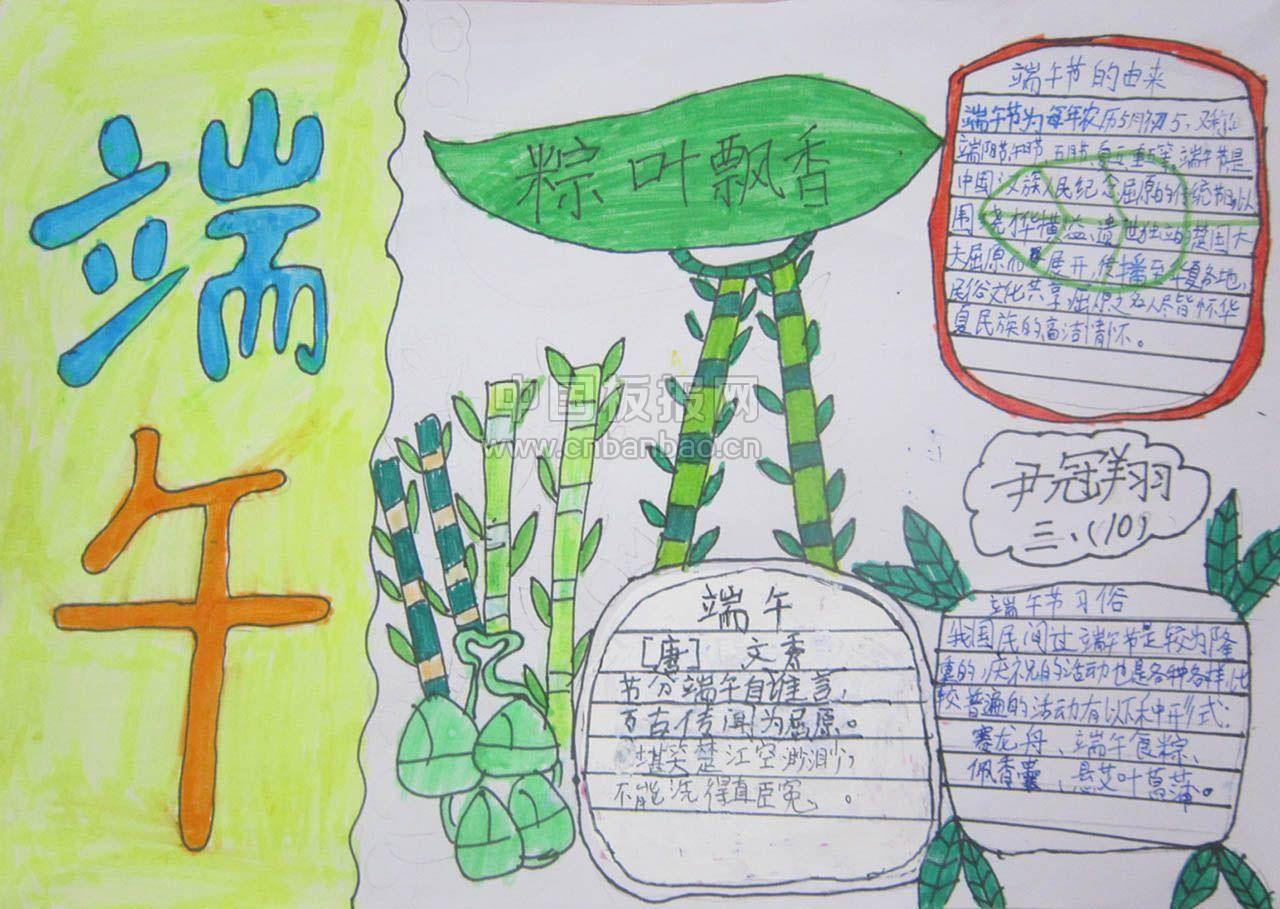 端午
粽叶飘香
端午节的由来
端午节为每年农历5月初5、又称
端阳节 午日节 五月节 等、端午节是
中国汉族人民纪念屈原的传统节日、以
围绕才华横溢、遗世独立的楚国大
夫屈原而展开,传播至华夏各地,
民俗文化共享,屈原之名人尽皆怀华
夏民族的高洁情怀。
中国板报网
www.cnbanbao.cn
尹冠翔
三、(10)
端午
[唐] 文秀
节分端午自谁言,
万古传闻为屈原。
堪笑楚江空渺渺,
不能洗得直臣冤、。
端午节习俗
我国民间过端午节是较为隆
重的,庆祝的活动也是各种各样,比
较普遍的活动有以下种形式:
赛龙舟、端午食粽、
佩香囊、悬艾叶菖蒲。